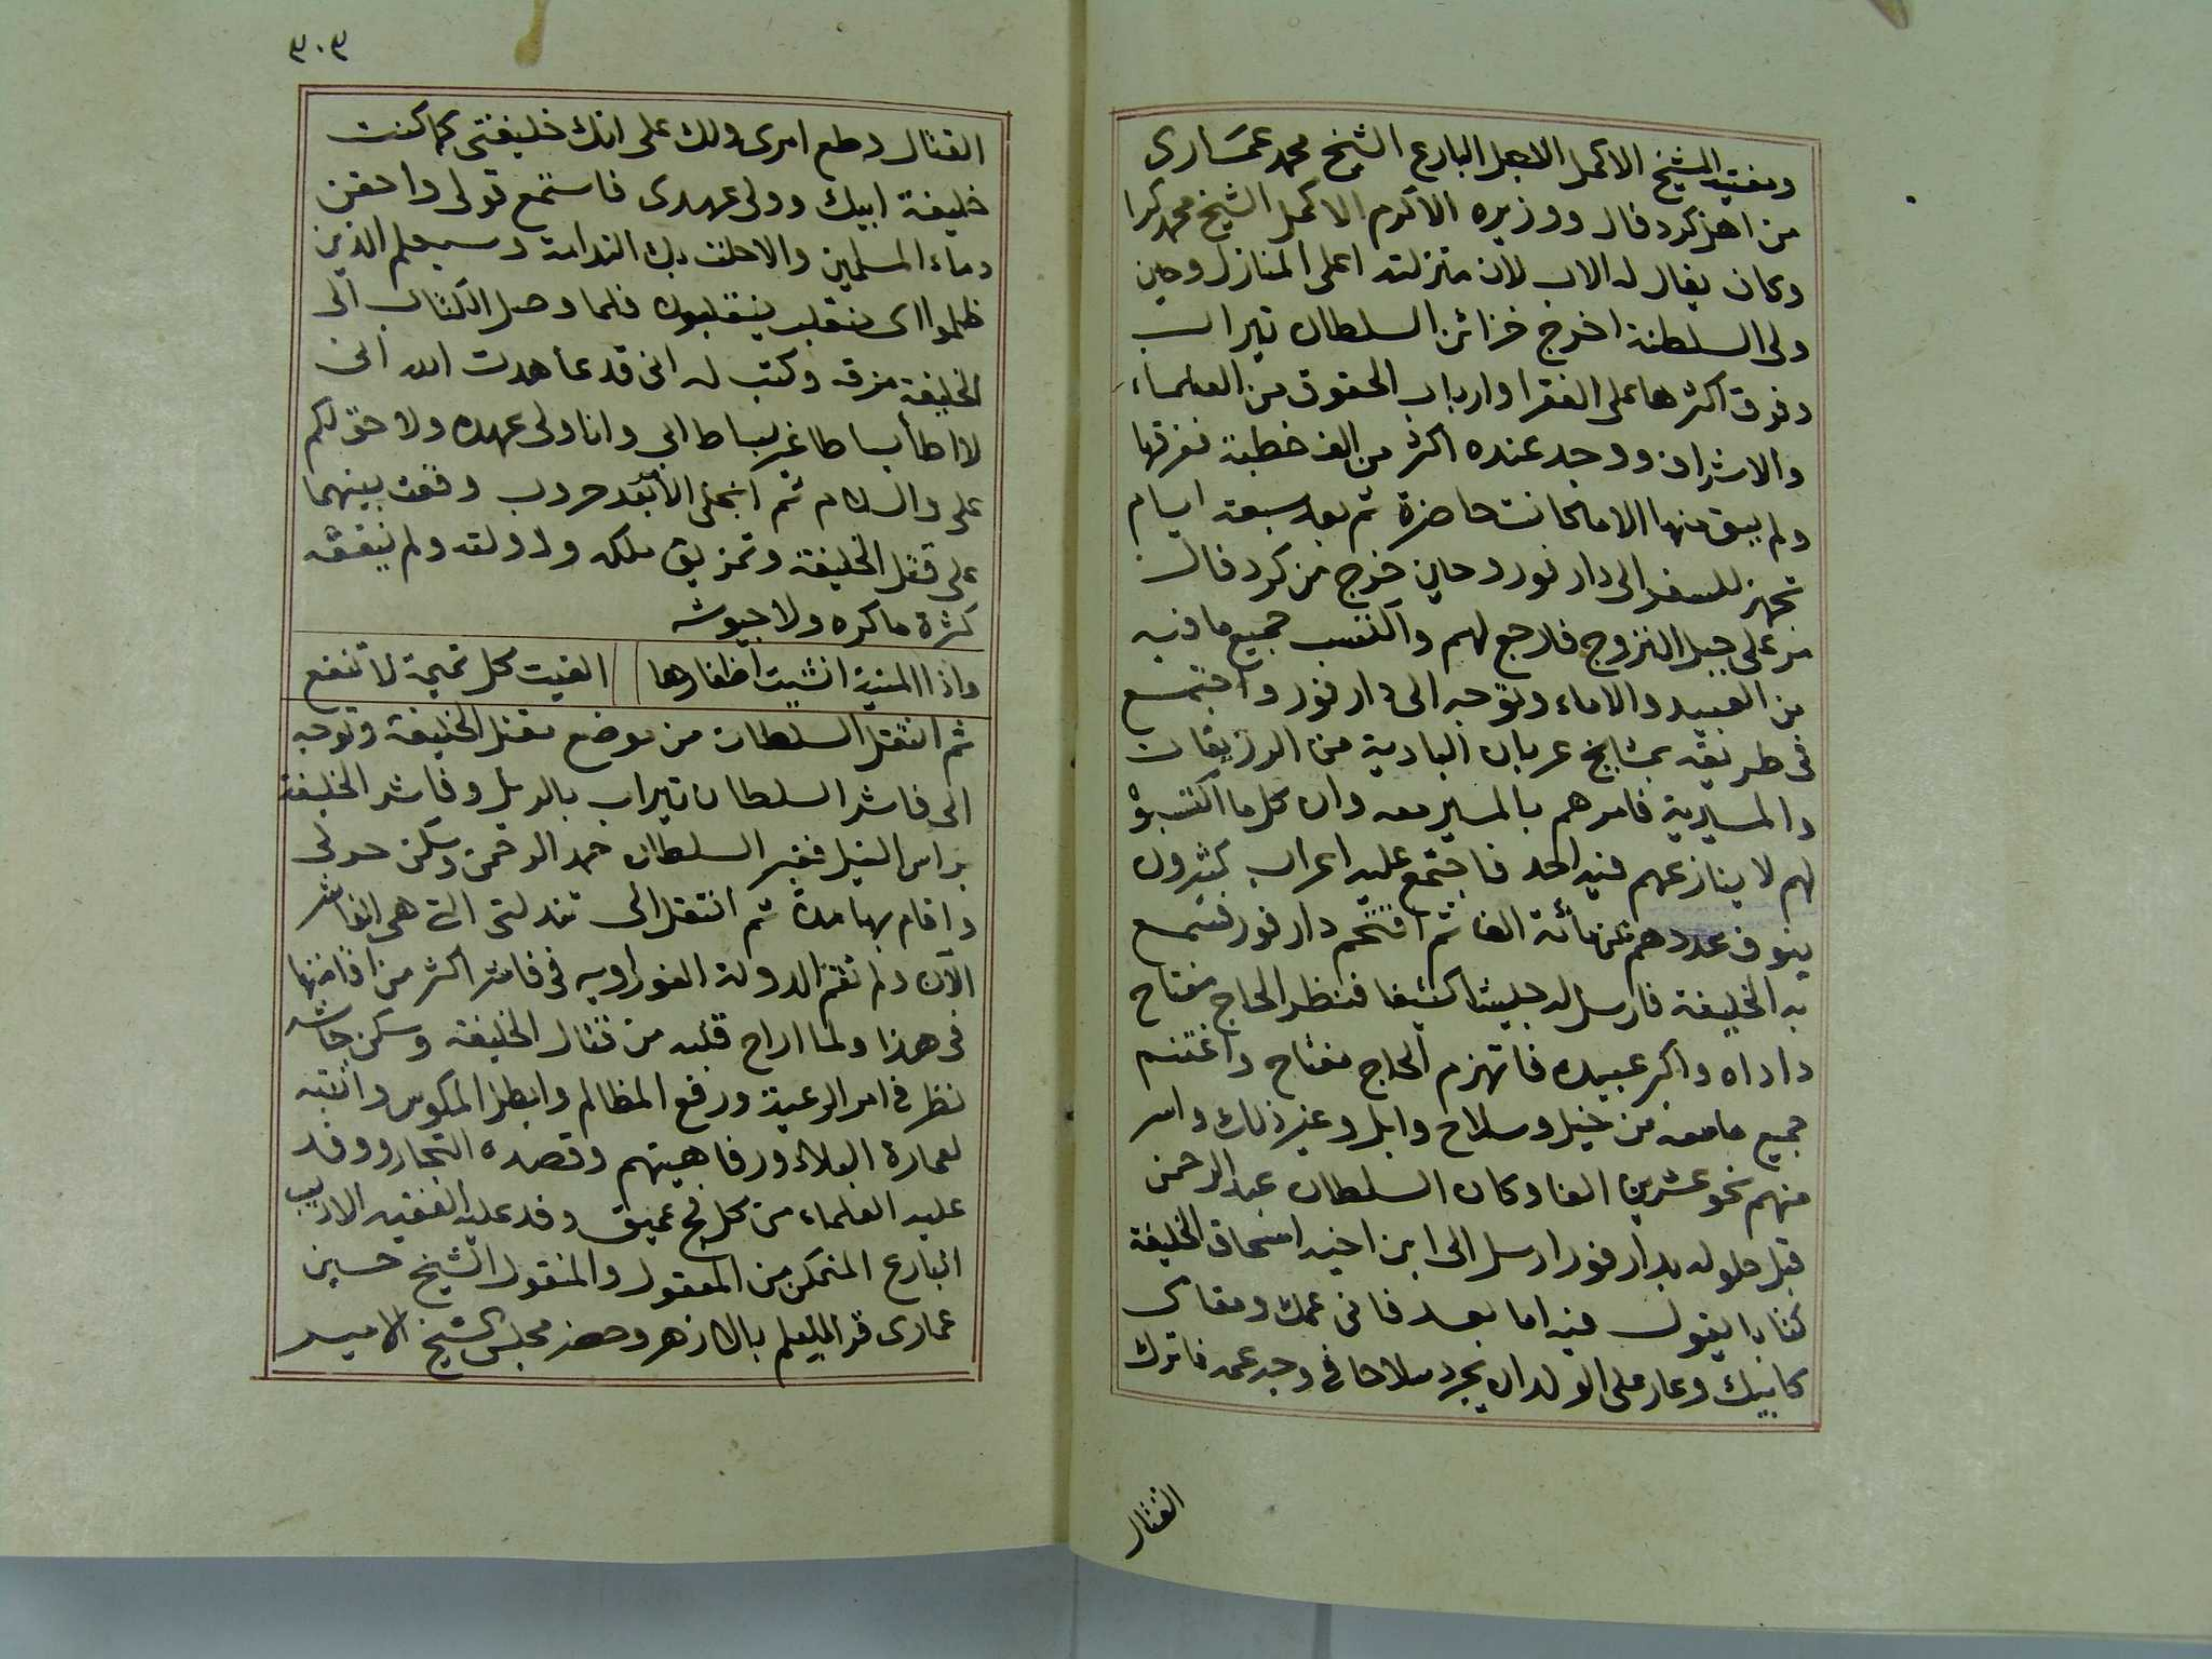 ومفتيه الشيخ الاكمل الاجل البارع الشيخ محمد عمّارى
من اهل كردفال ووزيره الاكرم الاكمل الشيخ محمد كرا
وكان يقال له الاب لان منزلته اعلى المنازل وحين
ولى السلطنة اخرج خزائن السلطان تيراب
وفرق اكثرها على الفقرا وارباب الحقوق من العلماء
والاشراف ووجد عنده اكثر من الف خطية ففرقها
ولم يبق منها الا ما كانت حاضرة ثم بعد سبعة ايام
تجهز للسفر الى دار فور وحين خرج من كردفال
مر على جبل النزوج فلا رجع لهم واكتسب جميع ما فيه
من العبيد والاماء وتوجه الى دار فور واجتمع
فى طريقه بمشايخ عربان البادية من الرزيقات
والمسيرية فامرهم بالمسير معه وان كل ما اكتسبوْ
لهم لا ينازعهم فيه احد فاجتمع عليه اعراب كثيرون
ينوف عددهم عن مائة الفا ثم اقتحم دار فور فسمع
به الخليفة فارسل له جيشا كثيفا فنظر الحاج مفتاح
داداه واكبر عبيده فانهزم الحاج مفتاح واغتنم
جميع ما معه من خيل وسلاح وابل وغير ذلك واسر
منهم نحو عشرين الفا وكان السلطان عبد الرحمن
قبل حلوله بدار فور ارسل الى ابن اخيه اسحاق الخليفة
كتابا يقول فيه اما بعد فانى عمك ومقامى
كابيك وعار على الولد ان يجرد سلاحا فى وجه عمه فاترك
القتال
٣٠٣
القتال وطع امرى ولك على انك خليفتى كما كنت
خليفة ابيك وولى عهدى فاستمع قولى واحقن
دماء المسلمين والا حلت بك الندامة وسيعلم الذين
ظلموا اى منقلب ينقلبون فلما وصل الكتاب الى
الخليفة مزقه وكتب له انى قد عاهدت الله انى
لا اطأ بساطا غير بساط ابى وانا ولى عهده ولا حق لكم
على والسلام ثم انجلى الأبعد حروب وقعت بينهما
على قتل الخليفة وتمزيق ملكه ودولته ولم ينفعه
كثرة ماكره ولا جيوشه
واذا المنية انشبت اظفارها الفيت كل تميمة لا تنفع
ثم انتقل السلطان من موضع مقتل الخليفة وتوجه
الى فاشر السلطان تيراب بالريل وفاشر الخليفة
براس الفيل فغير السلطان عبد الرحمن وسكن حولى
واقام بها مدة ثم انتقل الى تندلتى التى هى الفاشر
الآن ولم تقم الدولة الفوراويه فى فاشر اكثر من اقامتها
فى هذا ولما اراح قلبه من قتال الخليفة وسكن جاشه
نظر فى امر الرعية ورفع المظالم وابطل المكوس وانتبه
لعمارة البلاد ورفاهيتهم وقصده التجار ووفد
عليه العلماء من كل فج عميق وفد عليه الفقيه الاديب
البارع المتمكن من المعقول والمنقول الشيخ حسين
عمارى قرا العلم بالازهر وحضر مجلس الشيخ الامير